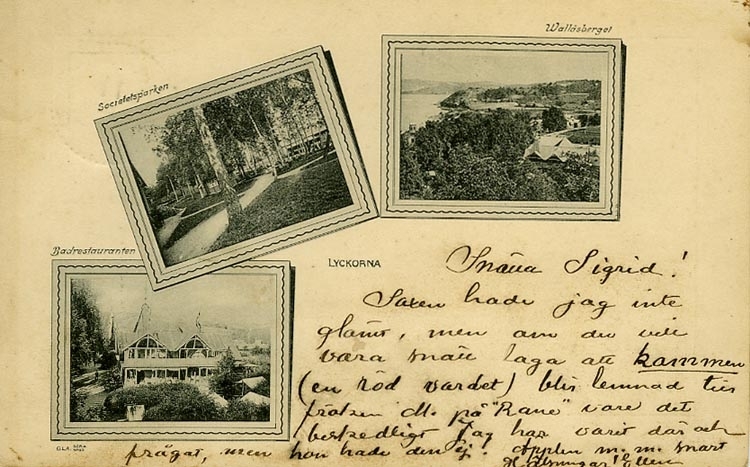 Wallåsberget
Societetsparken
Badrestauranten
LYCKORNA
Snälla Sigrid!
Saxen hade jag inte
glömt, men om du vill
vara snäll laga att kammen
(en röd vardet) blir lemnad till
fröken på "Rane" vore det
beskedligt Jag har varit där och
frågat, men hon hade den ej. m. m. snart
Ellen
G.L.A.